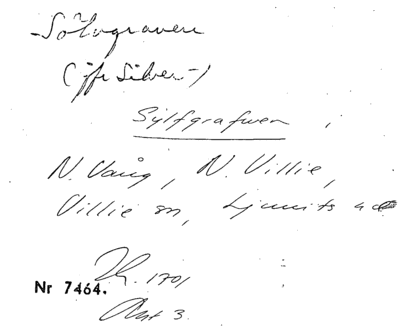 Sölvgraven
(jfr Silver-)
Sylfgrafwen
N. Vång, N. Villie,
Villie sn, Ljunits hd
1701
Nr 7464.
Akt 3.